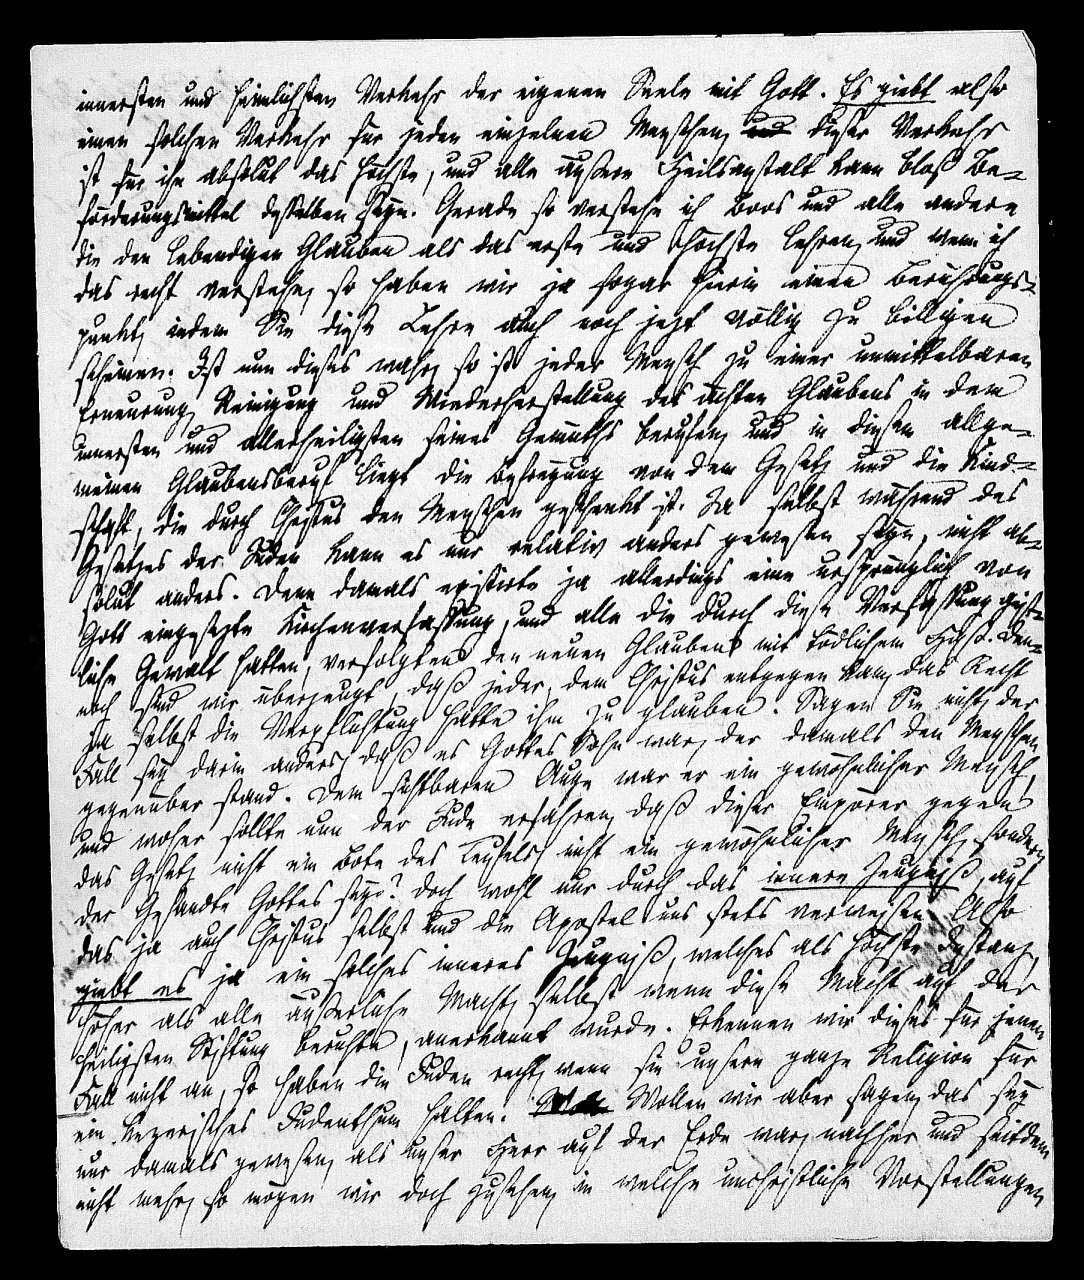 innersten und heimlichsten Verkehr der eigenen Seele mit Gott. Es giebt also
einen solchen Verkehr für jeden einzelnen Menschen, und dieser Verkehr
ist für ihn absolut das Höchste, und alle äußere Heilsanstalt kann bloß Be-
förderungsmittel desselben seyn. Gerade so verstehe ich Boos und alle andere
die den lebendigen Glauben als das erste und höchste lehren, und wenn ich
das recht verstehe, so haben wir ja sogar hierin einen Berührungs-
punkt, indem Sie diese Lehre auch noch jezt völlig zu billigen
scheinen. Ist nun dieses wahr, so ist jeder Mensch zu einer unmittelbaren
Erneurung, Reinigung und Wiederherstellung des ächten Glaubens in dem
innersten und allerheiligsten seines Gemüths berufen, und in diesem allge-
meinen Glaubensberuf liegt die Befreyung von dem Gesetz und die Kind-
schaft, die durch Christus den Menschen geschenkt ist. Ja selbst während des
Gesetzes der Juden kann es nur relativ anders gewesen seyn, nicht ab-
solut anders. Denn damals existirte ja allerdings eine ursprünglich von
Gott eingesezte Kirchenverfassung, und alle die durch diese Verfassung geist-
liche Gewalt hatten, verfolgten den neuen Glauben mit tödlichem Haß. Den-
noch sind wir überzeugt, daß jeder, dem Christus entgegen kam, das Recht
ja selbst die Verpflichtung hatte ihm zu glauben. Sagen Sie nicht, der
Fall sey darin anders, daß es Gottes Sohn war, der damals den Menschen
gegenüber stand. Dem sichtbaren Auge war er ein gewöhnlicher Mensch,
und woher sollte nun der Jude erfahren, daß dieser Empörer gegen
das Gesetz nicht ein Bote des Teufels, nicht ein gewöhnlicher Mensch, sondern
der Gesandte Gottes sey? Doch wohl nur durch das innere Zeugniß, auf
das ja auch Christus selbst und die Apostel uns stets verweisen. Also
giebt es ja ein solches inneres Zeugniß, welches als höchste Instanz,
höher als alle äußerliche Macht, selbst wenn diese Macht auf der
heiligsten Stiftung beruhte, anerkannt wurde. Erkennen wir dieses für jenen
Fall nicht an, so haben die Juden recht, wenn sie unsere ganze Religion für
ein kezerisches Judenthum halten. Wollen wir aber sagen, das sey
nur damals gewesen, als unser Herr auf der Erde war, nachher und seitdem
nicht mehr, so mögen wir doch zusehen, in welche unchristliche Vorstellungen